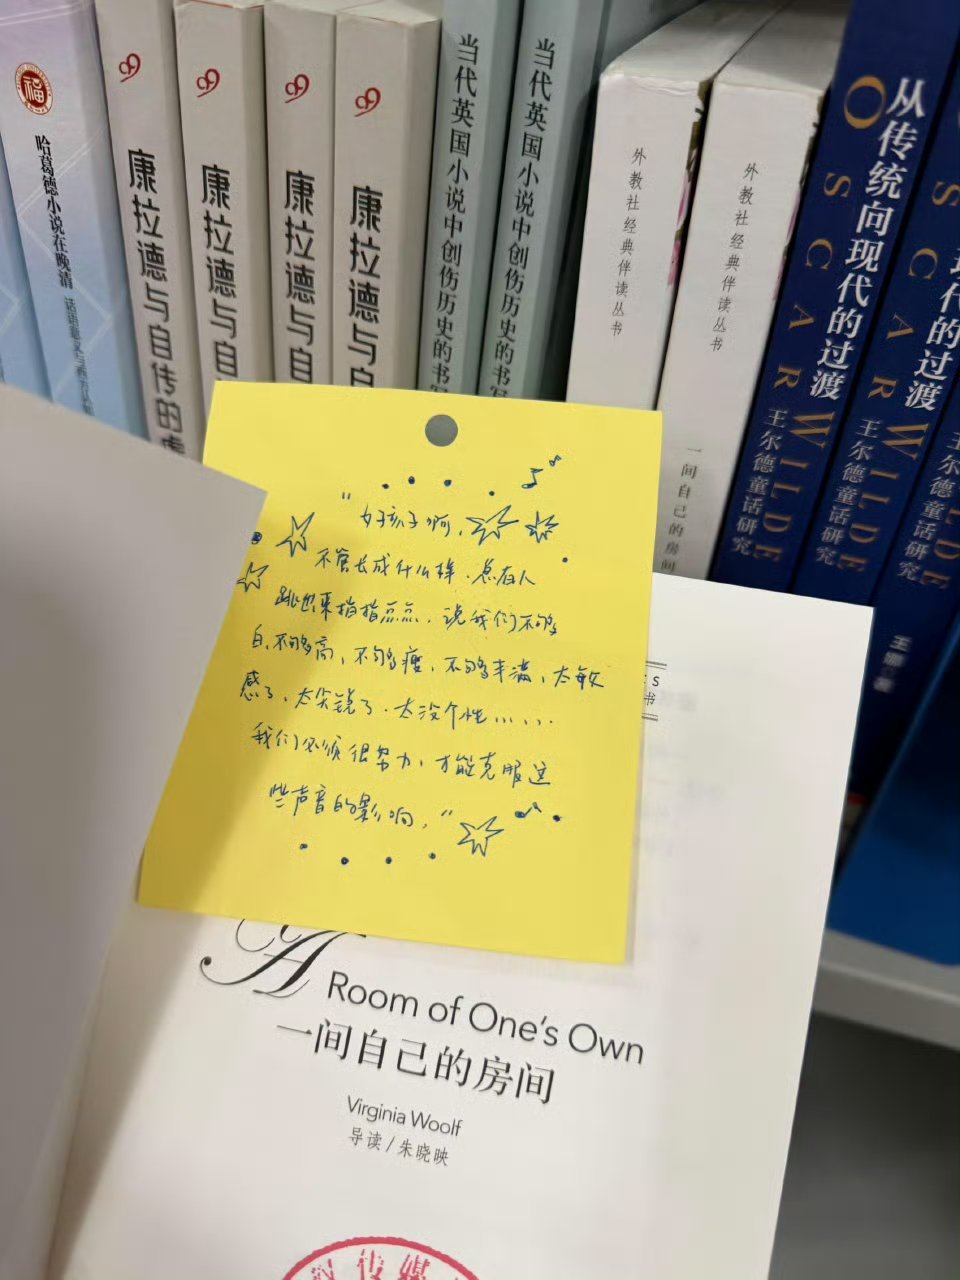 福
哈葛德小说在晚清
康拉德与自传的
康拉德与自
康拉德与自
康拉德与自
当代英国小说中创伤历史的书写
当代英国小说中创伤历史的书写
外教社经典伴读丛书
外教社经典伴读丛书
一间自己的房间
从传统向现代的过渡
OSCAR WILDE
王尔德童话研究
现代的过渡
SCAR WILDE
王尔德童话研究
王 著
“女孩子啊，
不管长成什么样，总有人
跳出来指指点点，说我们不够
白、不够高、不够瘦、不够丰满、太敏
感了、太尖锐了、太没个性……
我们必须很努力，才能克服这
些声音的影响，”
S
书
A Room of One's Own
一间自己的房间
Virginia Woolf
导读/朱晓映
传媒